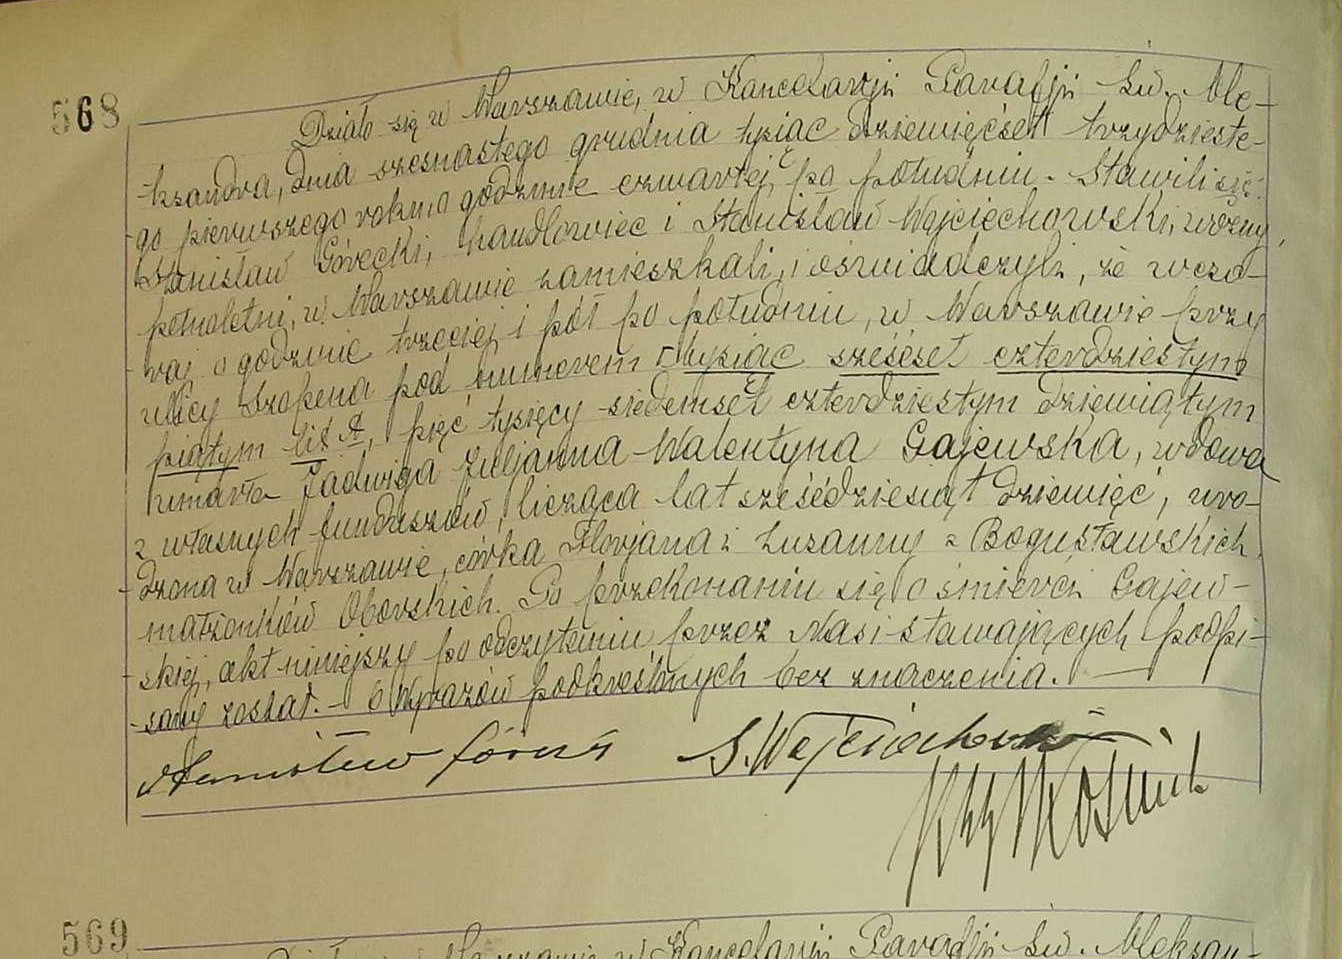 568
Działo się w Warszawie, w Kancelarji Parafji Św. Ale-
ksandra, dnia szesnastego grudnia tysiąc dziewięćset trzydzieste-
go pierwszego roku, o godzinie czwartej po południu. Stawili się:
Stanisław Górecki, handlowiec i Stanisław Wojciechowski, woźny,
pełnoletni, w Warszawie zamieszkali, i oświadczyli, że wczo-
raj o godzinie trzeciej i pół po południu, w Warszawie przy
ulicy Szopena pod numerem tysiąc sześćset czterdziestym
piątym lit A, pięć tysięcy siedemset czterdziestym dziewiątym
umarła Jadwiga Juljanna Walentyna Gajewska, wdowa
z własnych funduszów, licząca lat sześćdziesiąt dziewięć, uro-
dzona w Warszawie, córka Florjana i Zuzanny z Bogusławskich,
małżonków Oborskich. Po przekonaniu się o śmierci Gajew-
skiej, akt niniejszy po odczytaniu, przez Nas i stawających podpi-
sany został. - 6 wyrazów podkreślonych bez znaczenia. —
Stanisław Górecki S. Wojciechowski
569
Działo się w Warszawie w Kancelarji Parafji Św. Aleksan-